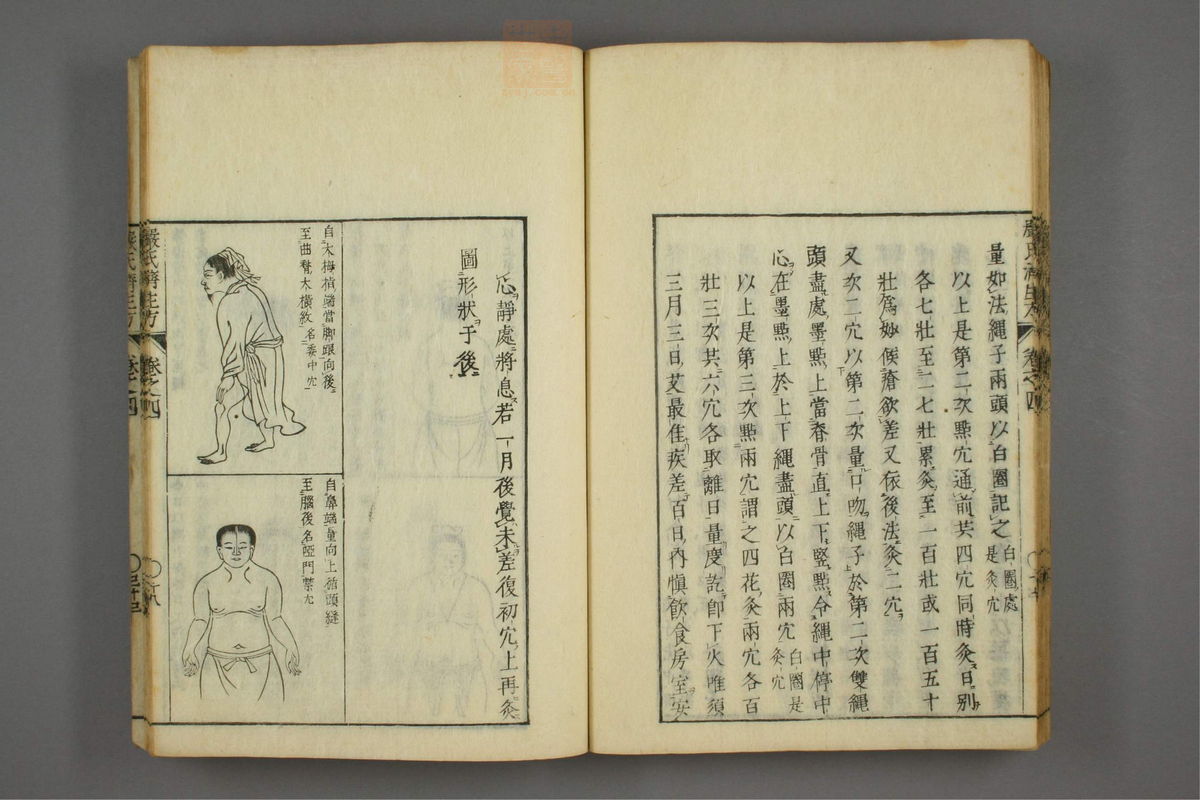 量如法繩子兩頭以白圈記之白圈處是灸穴
以上是第二次㸃穴通前共四穴同時灸日别
各七壯至二七壯累灸至一百壯或一百五十
壯爲妙候瘡欲差又依後法灸二穴
又次二穴以第二次量口吻繩子於第二次雙繩
頭盡處墨㸃上當脊骨直上下竪㸃令繩中停中
心在墨㸃上於上下繩盡頭以白圈兩穴白圈是灸穴
以上是第三次㸃兩穴謂之四花灸兩穴各百
壯三次共六穴各取離日量度訖卽下火唯須
三月三日艾最佳疾差百日內愼飮食房室安
心靜處將息若一月後覺未差復初穴上再灸
圖形狀于後
自大拇指端當脚跟向後
至曲䐐大橫紋名委中穴
自鼻端量向上循頭縫
至腦後名啞門禁穴
嚴氏濟生方
卷之四